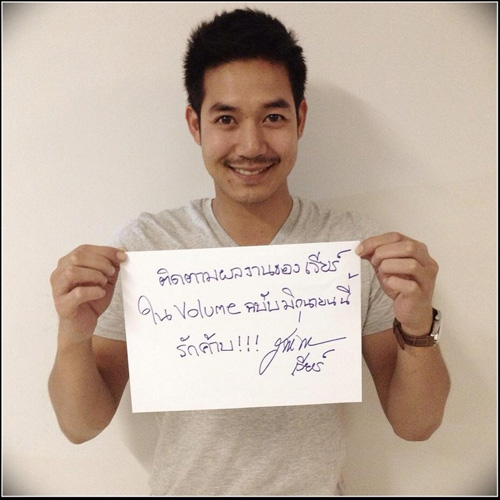 ติดตามผลงานของ เวียร์
ใน Volume ฉบับมิถุนายนนี้
รักค้าบ!!!
เวียร์